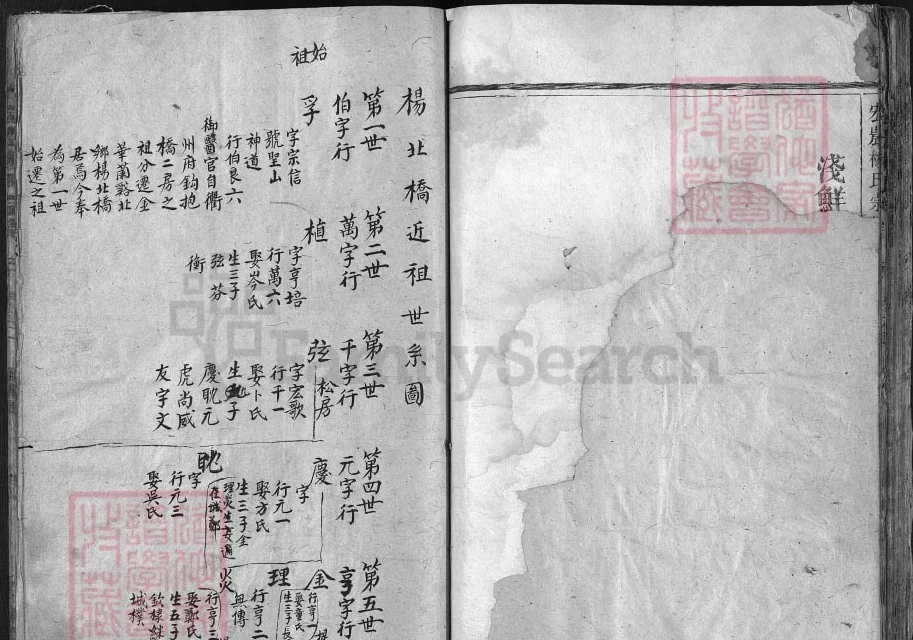 淺鮮
楊北橋近祖世系圖
第一世
伯字行
始祖
孚
字宗信
號聖山
神道
行伯良六
御醫官自衢
州府鈎抱
橋二房之
祖分遷金
華蘭谿北
鄉楊北橋
居焉今奉
為第一世
始遷之祖
第二世
萬字行
植
字亨培
行萬六
娶岑氏
生三子
弦芬
衡
第三世
千字行
弦
松房
字宏歌
行千一
娶卜氏
子
慶眈元
虎尚威
友宇文
第四世
元字行
慶
字
行元一
娶方氏
生三子金
理炎生女適
在城鄭
眈
字
行元三
娶吳氏
第五世
亨字行
金
行亨一
娶童氏
生三子長
理
行亨二
無傳
炎
行亨三
娶鄭氏
生五子
欽棣
城樸
FamilySearch